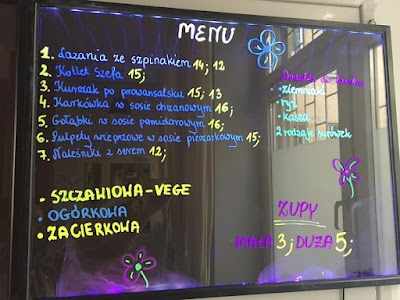 MENU
1. Łazania ze szpinakiem 14; 12
2. Kotlet Szefa 15;
3. Kurczak po prowansalsku 15; 13
4. Karkówka w sosie chrzanowym 16;
5. Gołąbki w sosie pomidorowym 16;
6. Pulpety wieprzowe w sosie pieczarkowym 15;
7. Naleśniki z serem 12;
• ziemniaki
• ryż
• kasza
2 rodzaje surówek
• SZCZAWIOWA-VEGE
• OGÓRKOWA
• ZACIERKOWA
ZUPY
MAŁA 3; DUŻA 5;